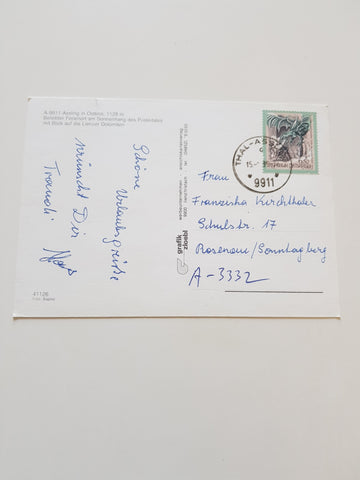 A-9911 Assling in Osttirol, 1128 m
Beliebter Ferienort am Sonnenhang des Pustertales
mit Blick auf die Lienzer Dolomiten
Schöne
Urlaubsgrüße
wünscht Dir
Traudi
41126
grafik
zloebl
THAL-ASS
9911
Frau
Franziska Kirchthaler
Schulstr. 17
Rosenau/Sonntagberg
A-3332